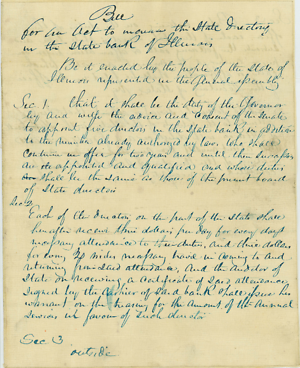 Bill
for an Act to increase the State Directors
in the State bank of Illinois
Be it enacted by the people of the State of
Illinois represented in the General assembly
Sec 1. that it shall be the duty of the Governor
by and with the advice and consent of the Senate
to appoint five directors in the State bank in addition
to the number already authorized by law, who shall
continue in office for two years and until their successors
are appointed and qualified and whose duties
shall be the same as those of the present board
of State directors
Sec 2
Each of the directors on the part of the State shall
hereafter receive three dollars per day for every days
necessary attendance to duties, and three dollars
for every 20 miles necessary travel in coming to and
returning from said attendance, and the Auditor of
State on receiving a certificate of said attendance
signed by the Cashier of said bank shall issue his
warrant on the treasury for the amount of the
in favour of such director
Sec 3
outside